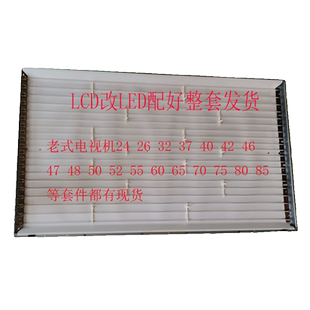 LCD改LED配好整套发货
老式电视机24 26 32 37 40 42 46
47 48 50 52 55 60 65 70 75 80 85
等套件都有现货